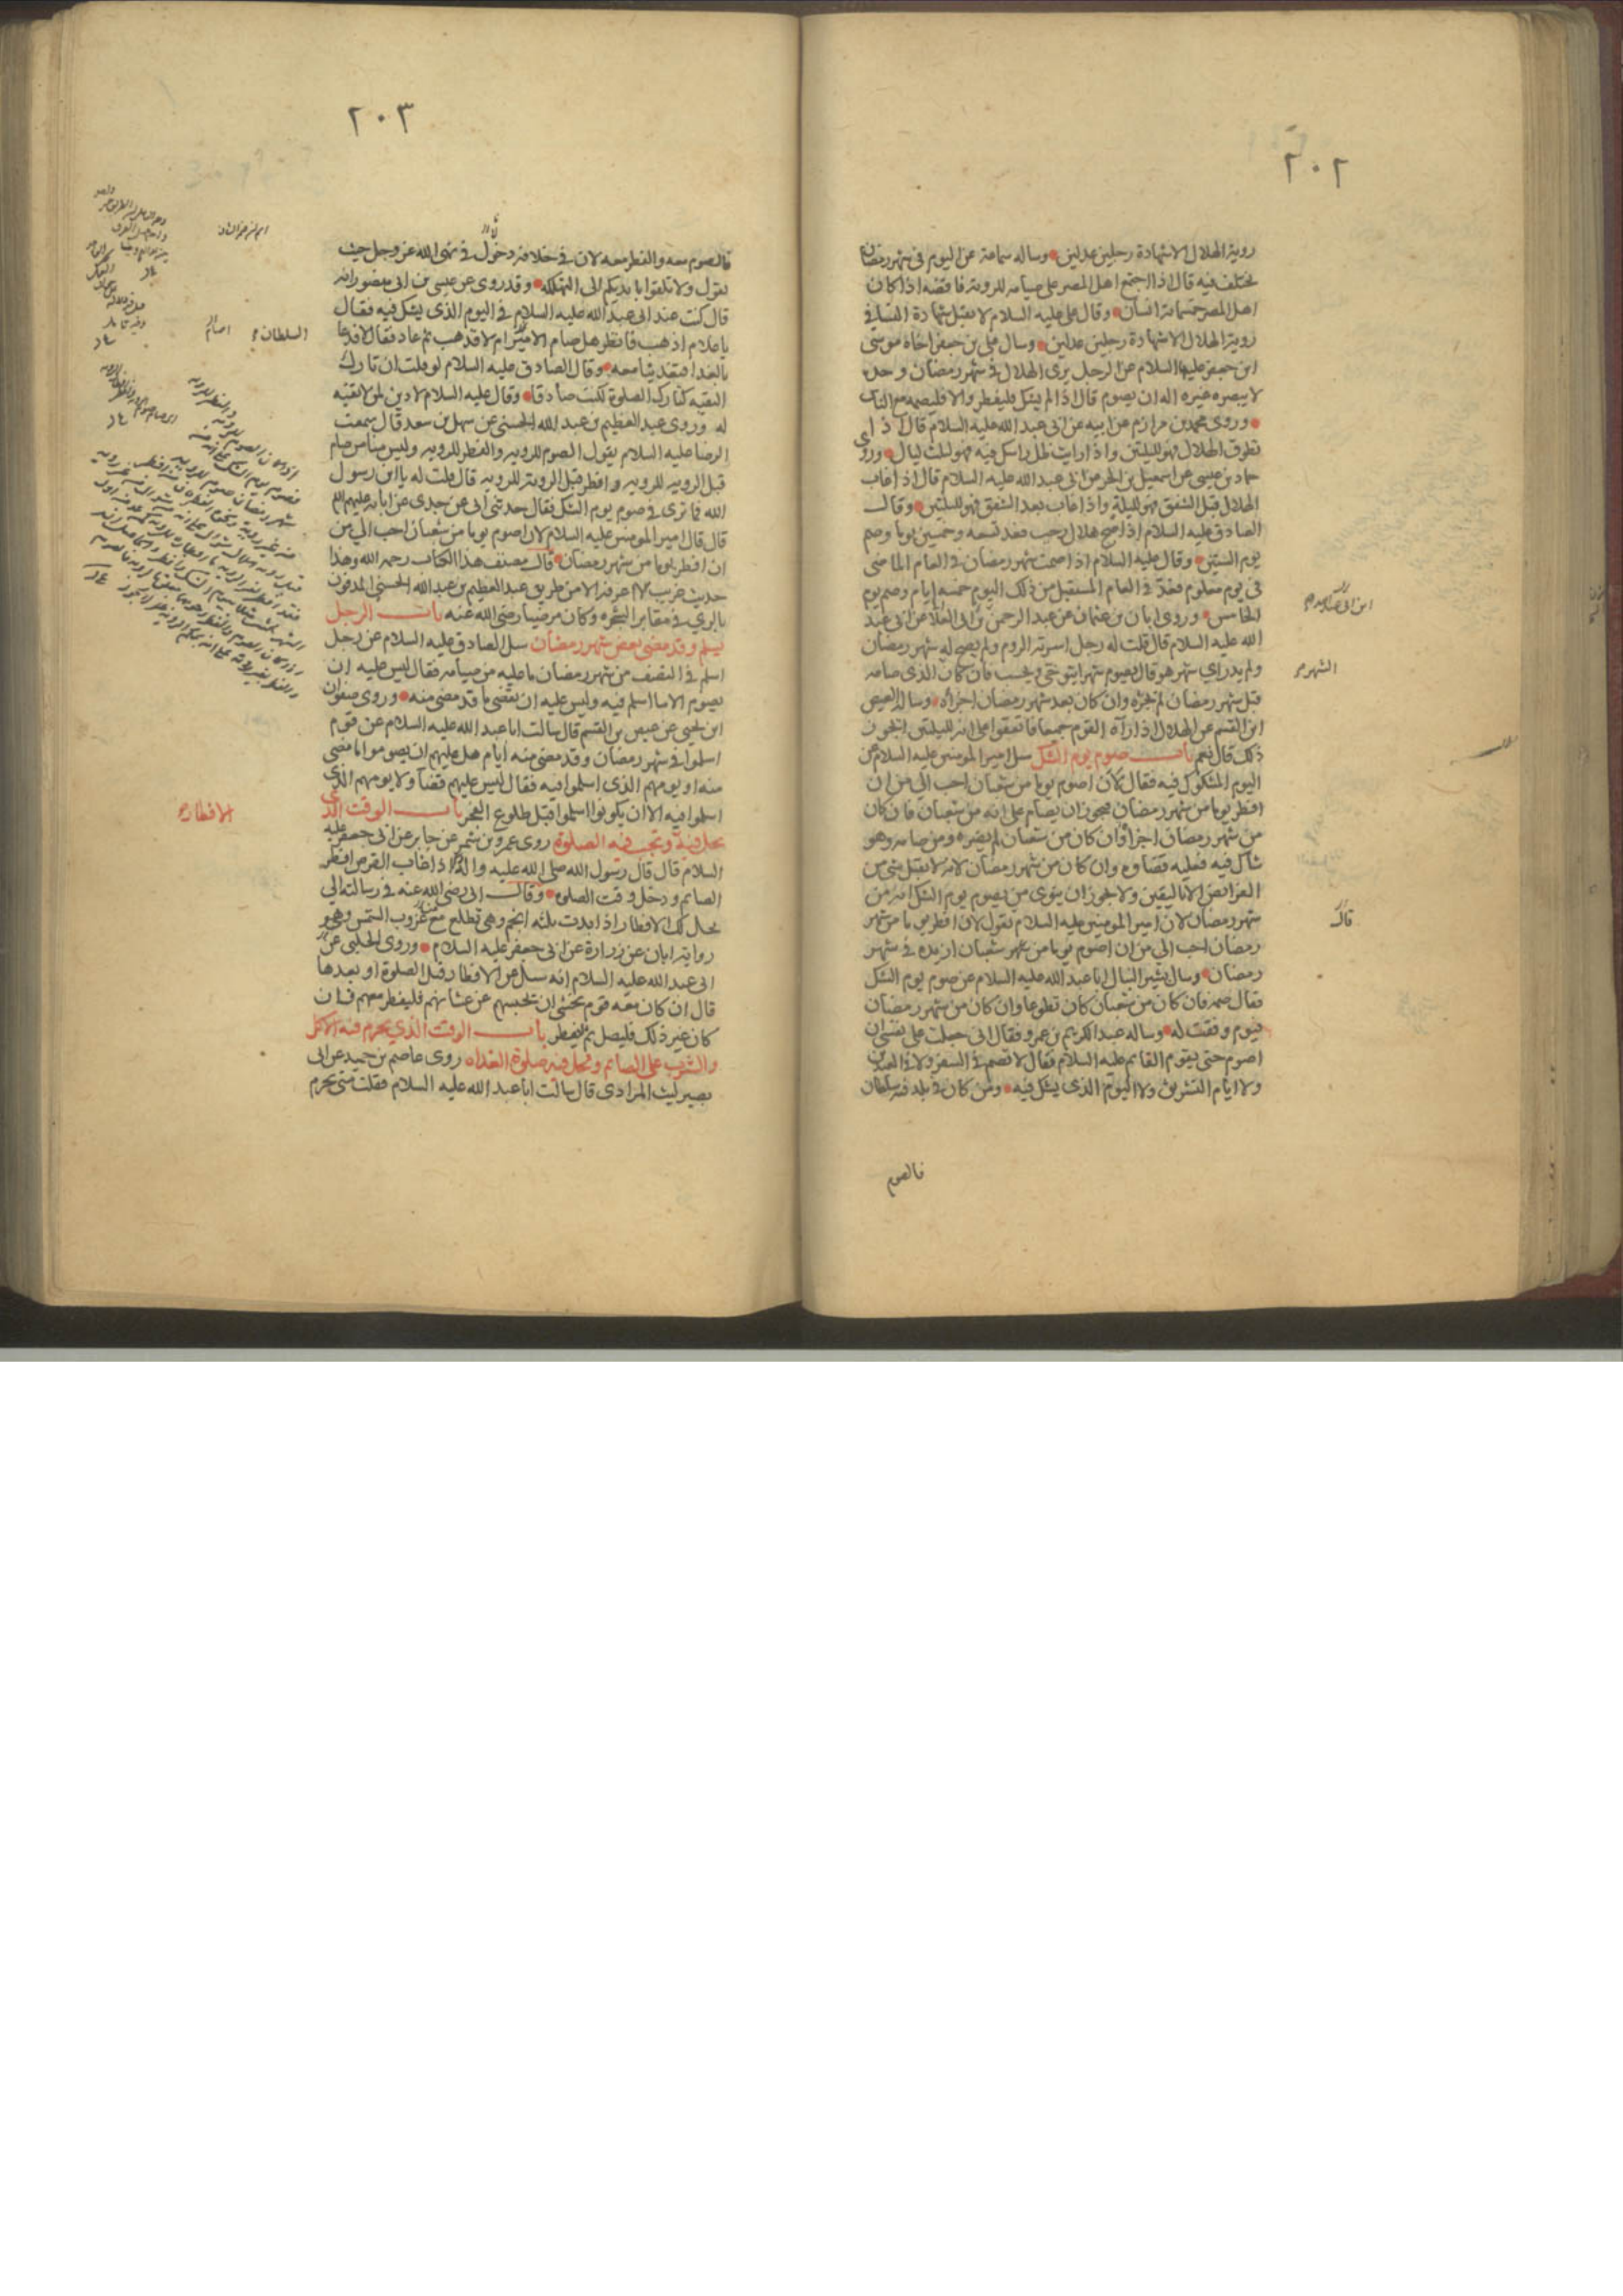 ٢٠٢
روية الهلال الا شهادة رجلين عدلين وساله سماعة عن اليوم فى شهر رمضان
يختلف فيه قال اذا اجتمع اهل المصر على صيامه للروية فاقضه اذا كان
اهل المصر خمسماية انسان وقال على عليه السلام لا تقبل شهادة النساء فى
روية الهلال الا شهادة رجلين عدلين وسال على بن جعفر اخاه موسى
ابن جعفر عليهما السلام عن الرجل يرى الهلال فى شهر رمضان وحده
لا يبصره غيره اله ان يصوم قال اذا لم يشك فليفطر والا فليصمه مع الناس
وروى محمد بن مرازم عن ابيه عن ابى عبد الله عليه السلام قال اذا
تطوق الهلال فهو لليلتين واذا رايت ظل راسك فيه فهو لثلث ليال وروى
حماد بن عيسى عن اسمعيل بن الحر عن ابى عبد الله عليه السلام قال اذا غاب
الهلال قبل الشفق فهو لليلة واذا غاب بعد الشفق فهو لليلتين وقال
الصادق عليه السلام اذا صح هلال رجب فعد تسعة وخمسين يوما وصم
يوم الستين وقال عليه السلام اذا صمت شهر رمضان فى العام الماضى
فى يوم معلوم فعد فى العام المستقبل من ذلك اليوم خمسة ايام وصم يوم
الخامس وروى ابان بن عثمان عن عبد الرحمن بن ابى العلا عن ابى عبد
الله عليه السلام قال قلت له رجل اسرته الروم ولم يصح له شهر رمضان
ولم يدر اى شهر هو قال يصوم شهرا يتوخى ويحسب فان كان الذى صامه
قبل شهر رمضان لم يجزه وان كان بعد شهر رمضان اجزاه وساله العيص
ابن القسم عن الهلال اذا رآه القوم جميعا فاتفقوا على انه لليلتين ايجوز
ذلك قال نعم باب صوم يوم الشك سئل امير المومنين عليه السلام عن
اليوم المشكوك فيه فقال لان اصوم يوما من شعبان احب الى من ان
افطر يوما من شهر رمضان فيجوز ان يصام على انه من شعبان فان كان
من شهر رمضان اجزأ وان كان من شعبان لم يضره ومن صامه وهو
شاك فيه فعليه قضاوه وان كان من شهر رمضان لانه لا يقبل شى من
الفرائض الا باليقين ولا يجوز ان ينوى من يصوم يوم الشك انه من
شهر رمضان لان امير المومنين عليه السلام يقول لان افطر يوما من شهر
رمضان احب الى من ان اصوم يوما من شهر شعبان ازيده فى شهر
رمضان وسال بشير النبال ابا عبد الله عليه السلام عن صوم يوم الشك
فقال صمه فان كان من شعبان كان تطوعا وان كان من شهر رمضان
فيوم وفقت له وساله عبد الكريم بن عمرو فقال انى جعلت على نفسى ان
اصوم حتى يقوم القايم عليه السلام فقال لا تصم فى السفر ولا فى العيدين
ولا ايام التشريق ولا اليوم الذى يشك فيه ومن كان فى بلد فيه سلطان
فالصوم
الشهر
قال
٢٠٣
فالصوم معه والفطر معه لان فى خلافه دخول فى نهى الله عز وجل حيث
يقول ولا تلقوا بايديكم الى التهلكه وقد روى عن عيسى بن ابى منصور انه
قال كنت عند ابى عبد الله عليه السلام فى اليوم الذى يشك فيه فقال
يا غلام اذهب فانظر هل صام الامير ام لا فذهب ثم عاد فقال لا فدعا
بالغدا فتغدينا معه وقال الصادق عليه السلام لو قلت ان تارك
التقيه كتارك الصلوة لكنت صادقا وقال عليه السلام لا دين لمن لا تقيه
له وروى عبد العظيم بن عبد الله الحسنى عن سهل بن سعد قال سمعت
الرضا عليه السلام يقول الصوم للرويه والفطر للرويه وليس منا من صام
قبل الرويه للرويه وافطر قبل الروية للرويه قال قلت له يا ابن رسول
الله فما ترى فى صوم يوم الشك فقال حدثنى ابى عن جدى عن ابايه عليهم السلام
قال قال امير المومنين عليه السلام لان اصوم يوما من شعبان احب الى من
ان افطر يوما من شهر رمضان قال مصنف هذا الكتاب رحمه الله وهذا
حديث غريب لا اعرفه الا من طريق عبد العظيم بن عبد الله الحسنى المدفون
بالرى فى مقابر الشجره وكان مرضيا رضى الله عنه باب الرجل
يسلم وقد مضى بعض شهر رمضان سئل الصادق عليه السلام عن رجل
اسلم فى النصف من شهر رمضان ما عليه من صيامه فقال ليس عليه ان
يصوم الا ما اسلم فيه وليس عليه ان يقضى ما قد مضى منه وروى صفوان
ابن يحيى عن عيص بن القسم قال سالت ابا عبد الله عليه السلام عن قوم
اسلموا فى شهر رمضان وقد مضى منه ايام هل عليهم ان يصوموا ما مضى
منه او يومهم الذى اسلموا فيه فقال ليس عليهم قضآ ولا يومهم الذى
اسلموا فيه الا ان يكونوا اسلموا قبل طلوع الفجر باب الوقت الذى
يحل فيه وتجب فيه الصلوة روى عمرو بن شمر عن جابر عن ابى جعفر عليه
السلام قال قال رسول الله صلى الله عليه واله اذا غاب القرص افطر
الصايم ودخل وقت الصلوة وقال ابى رضى الله عنه فى رسالته الى
يحل لك الافطار اذا بدت ثلثه انجم وهى تطلع مع غروب الشمس وهو
رواية ابان عن زرارة عن ابى جعفر عليه السلام وروى الحلبى عن
ابى عبد الله عليه السلام انه سئل عن الافطار قبل الصلوة او بعدها
قال ان كان معه قوم يخشى ان يحبسهم عن عشائهم فليفطر معهم فان
كان غير ذلك فليصل ثم ليفطر باب الوقت الذى يحرم فيه الاكل
والشرب على الصائم وتحل فيه صلوة الغداه روى عاصم بن حميد عن ابى
بصير ليث المرادى قال سالت ابا عبد الله عليه السلام فقلت متى يحرم
السلطان
الافطار